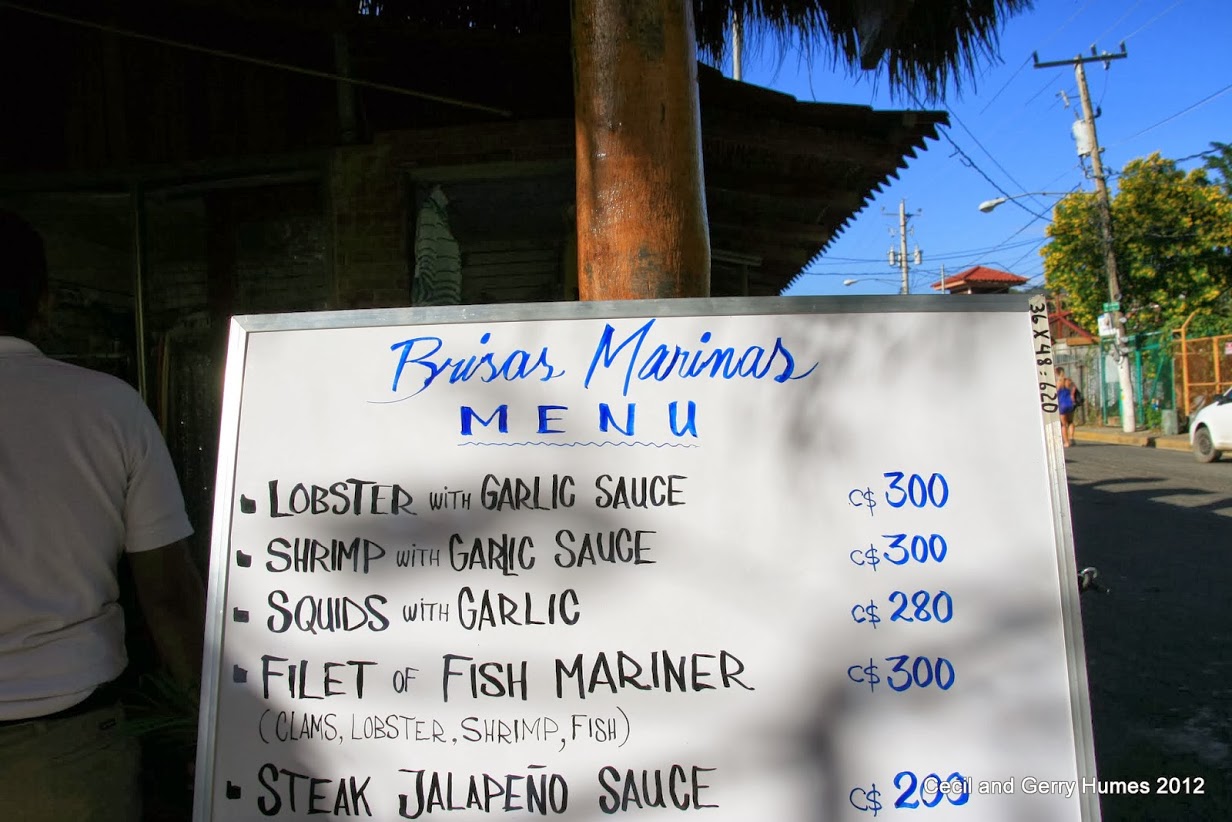 Brisas Marinas
MENU
LOBSTER WITH GARLIC SAUCE C$ 300
SHRIMP WITH GARLIC SAUCE C$ 300
SQUIDS WITH GARLIC C$ 280
FILET OF FISH MARINER C$ 300
(CLAMS, LOBSTER, SHRIMP, FISH)
STEAK JALAPEÑO SAUCE C$ 200
36 X 48 = 620
Cecil and Gerry Humes 2012